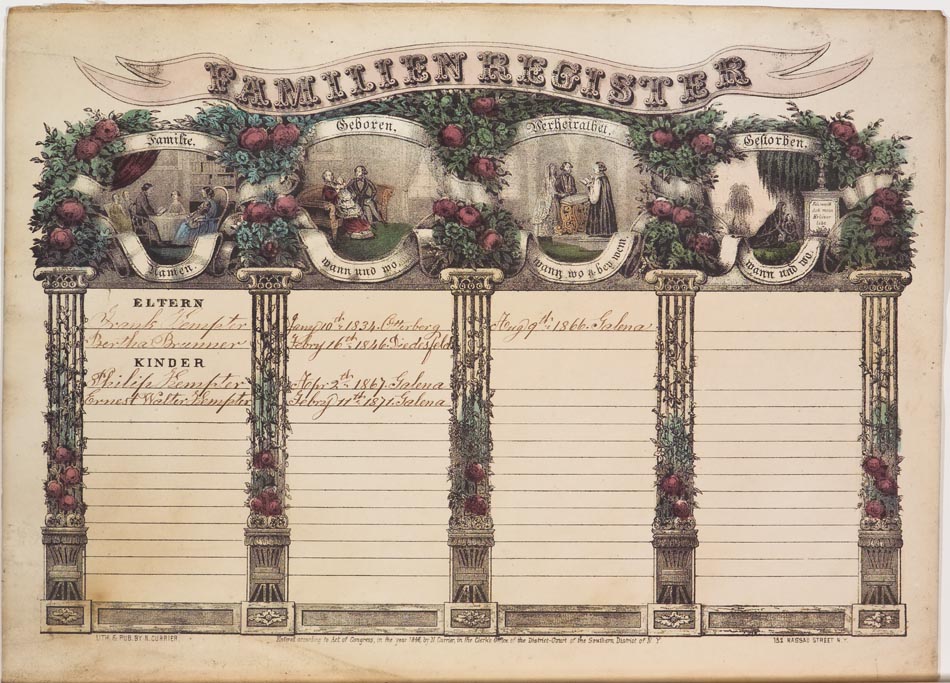 FAMILIEN REGISTER
Familie.
Geboren.
Verheirathet.
Gestorben.
Namen.
wann und wo.
wann, wo & bey wem
wann und wo.
ELTERN
Frank Kempter Jany 10th 1834. Aug 9th 1866. Galena
Bertha Brunner Febry 16th 1846.
KINDER
Philip Kempter Apr 2th 1867. Galena
Ernest Walter Kempter Febry 11th 1871. Galena
LITH. & PUB. BY N. CURRIER.
Entered according to Act of Congress, in the year 1846, by N. Currier, in the Clerk's Office of the District-Court of the Southern District of N.Y
152 NASSAU STREET N.Y